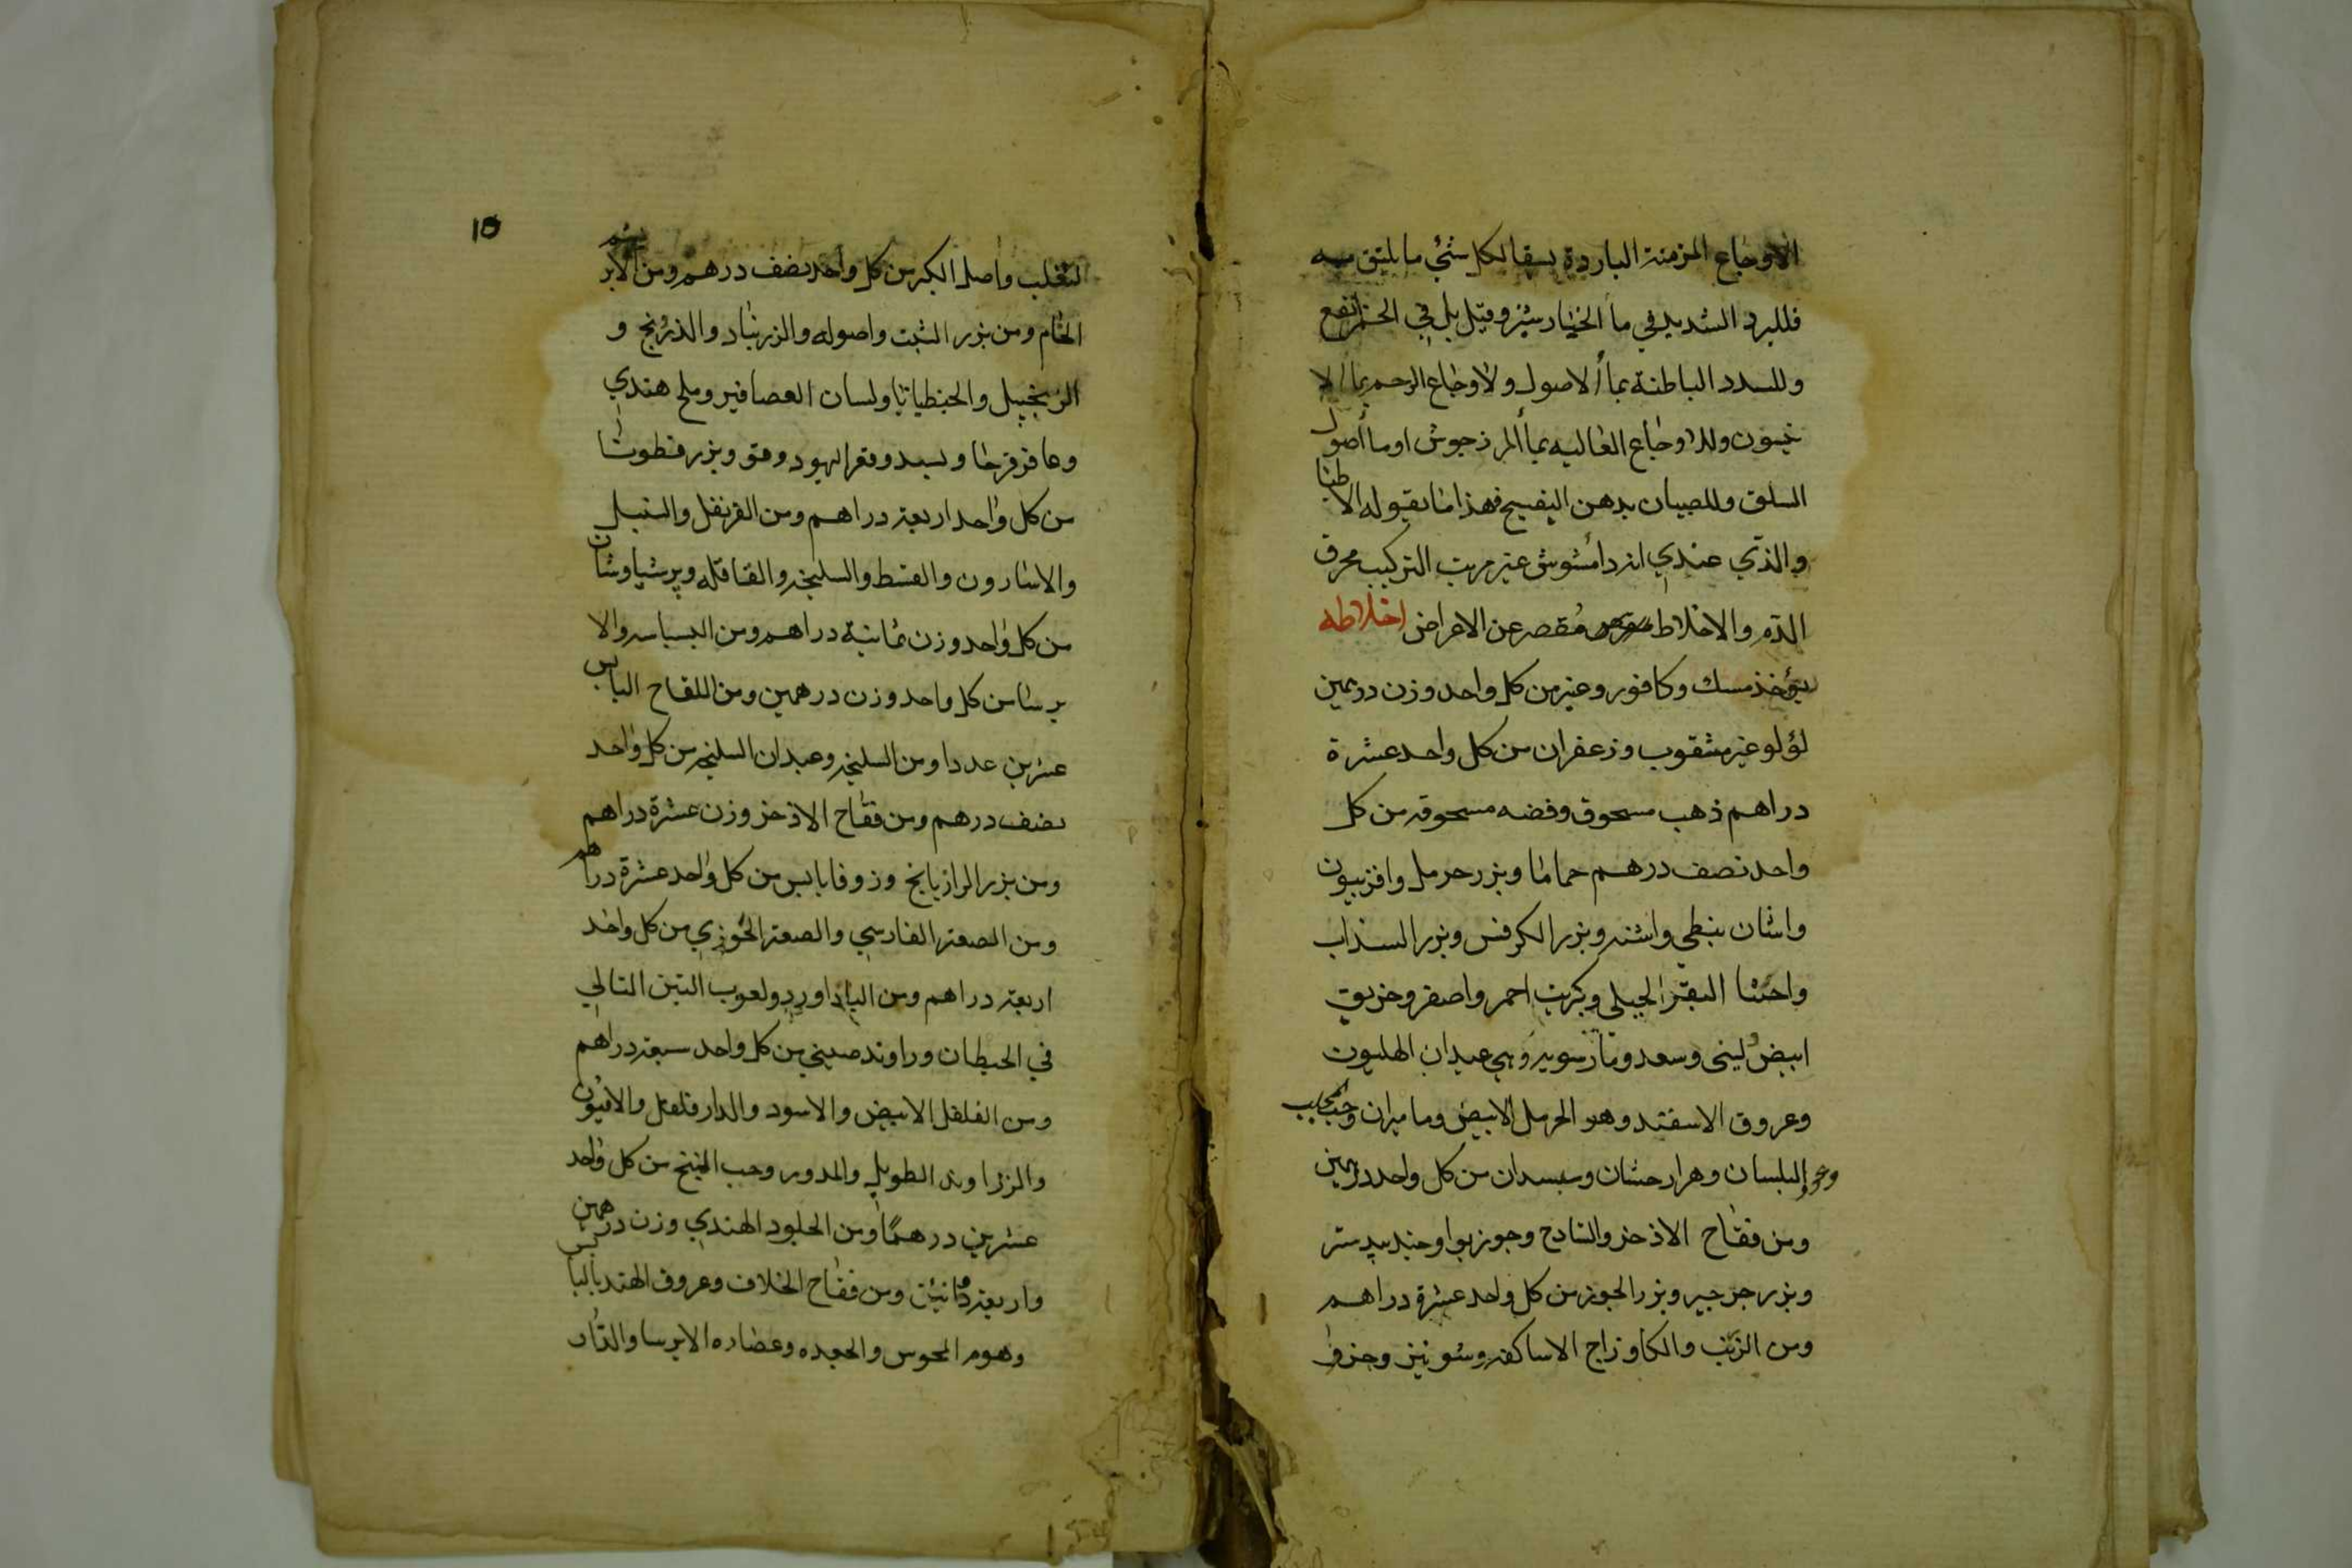 الاوجاع المزمنة الباردة يسقا لكل شئ ما يليق به
فللبرد الشديد في ماء الخيار شنبر وقيل بل في الخمر انفع
وللسدد الباطنة بماء الاصول ولاوجاع الرحم بماء الا
نيسون وللاوجاع الغاليه بماء المرزجوش او ماء أصول
السلق وللصبيان بدهن البنفسج فهذا ما يقوله الاطبا
والذي عندي انه دامشوش غير مرتب التركيب محرق
الدم والاخلاط مقصر عن الاعراض اخلاطه
يؤخذ مسك وكافور وعنبر من كل واحد وزن درهمين
لؤلو غير مثقوب وزعفران من كل واحد عشرة
دراهم ذهب مسحوق وفضه مسحوقه من كل
واحد نصف درهم حماما وبزر حرمل وافربيون
واشنان نبطي واشنه وبزر الكرفس وبزر السذاب
واخثا البقر الجبلي وكبريت احمر واصفر وخربق
ابيض وسعد وهي عيدان الهليون
وعروق الاسفند وهو الحرمل الابيض وماميران وحب المحلب
وعود البلسان وهزارجشان وسبسدان من كل واحد درهمين
ومن فقاح الاذخر والسادج وجوز بوا وجندبيدستر
وبزر جرجير وبزر الجوز من كل واحد عشرة دراهم
ومن الزفت والكاو زاج الاساكفه وشونيز وخزف
15
لثعلب واصل الكبر من كل واحد نصف درهم ومن الابريسم
الخام ومن بزر الشبت واصوله والزرنباد والذرونج و
الزنجبيل والجنطيانا ولسان العصافير وملح هندي
وعاقرقرحا وبسد وقفر اليهود ومقو وبزر قطونا
من كل واحد اربعة دراهم ومن القرنفل والسنبل
والاسارون والقسط والسليخه والقاقله وبرشياوشان
من كل واحد وزن ثمانية دراهم ومن البسباسه والا
يرسا من كل واحد وزن درهمين ومن اللقاح اليابس
عشرين عددا ومن السليخه وعيدان السليخه من كل واحد
نصف درهم ومن فقاح الاذخر وزن عشرة دراهم
ومن بزر الرازيانج وزوفا يابس من كل واحد عشرة دراهم
ومن الصعتر الفارسي والصعتر الخوزي من كل واحد
اربعة دراهم ومن الباداورد ولعوب التين التالي
في الحيطان وراوند صيني من كل واحد سبعة دراهم
ومن الفلفل الابيض والاسود والدار فلفل والافيون
والزراوند الطويل والمدور وحب البنج من كل واحد
عشرين درهما ومن الجلود الهندي وزن درهمين
واربعة دوانيق ومن فقاح الخلاف وعروق الهندبا اليابس
وهوم المجوس والجعده وعصاره الايرسا والدار